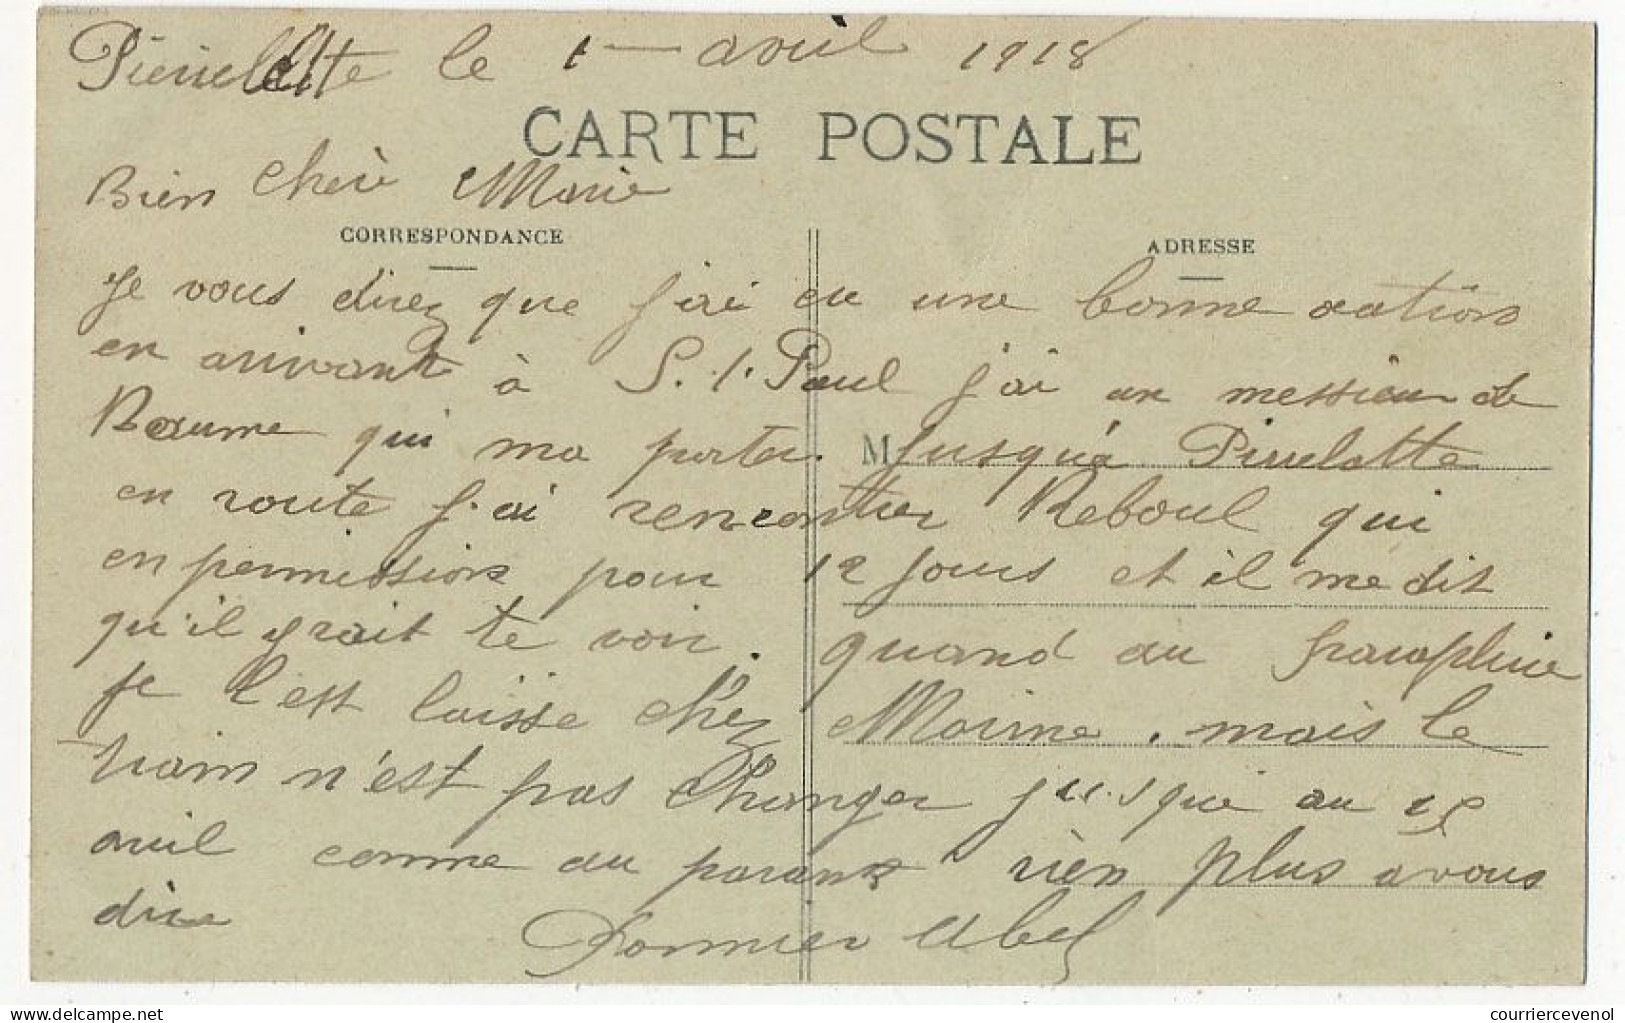 Pierrelatte le 1 — avril 1918
CARTE POSTALE
Bien chère Marie
CORRESPONDANCE
ADRESSE
Je vous direz que j'ai eu une bonne
en arrivant à S.t. Paul j'ai un messieur de
Baume qui ma porter. M jusqu'a Pierrelatte
en route j'ai rencontrer Reboul qui
en permission pour 12 jours et il me dit
qu'il irait te voir. quand au
je l'est laisse chez Moirne. mais le
train n'est pas changer jusque au 15
avril comme au rien plus a vous
dire
Abel
delcampe.net
courriercevenol